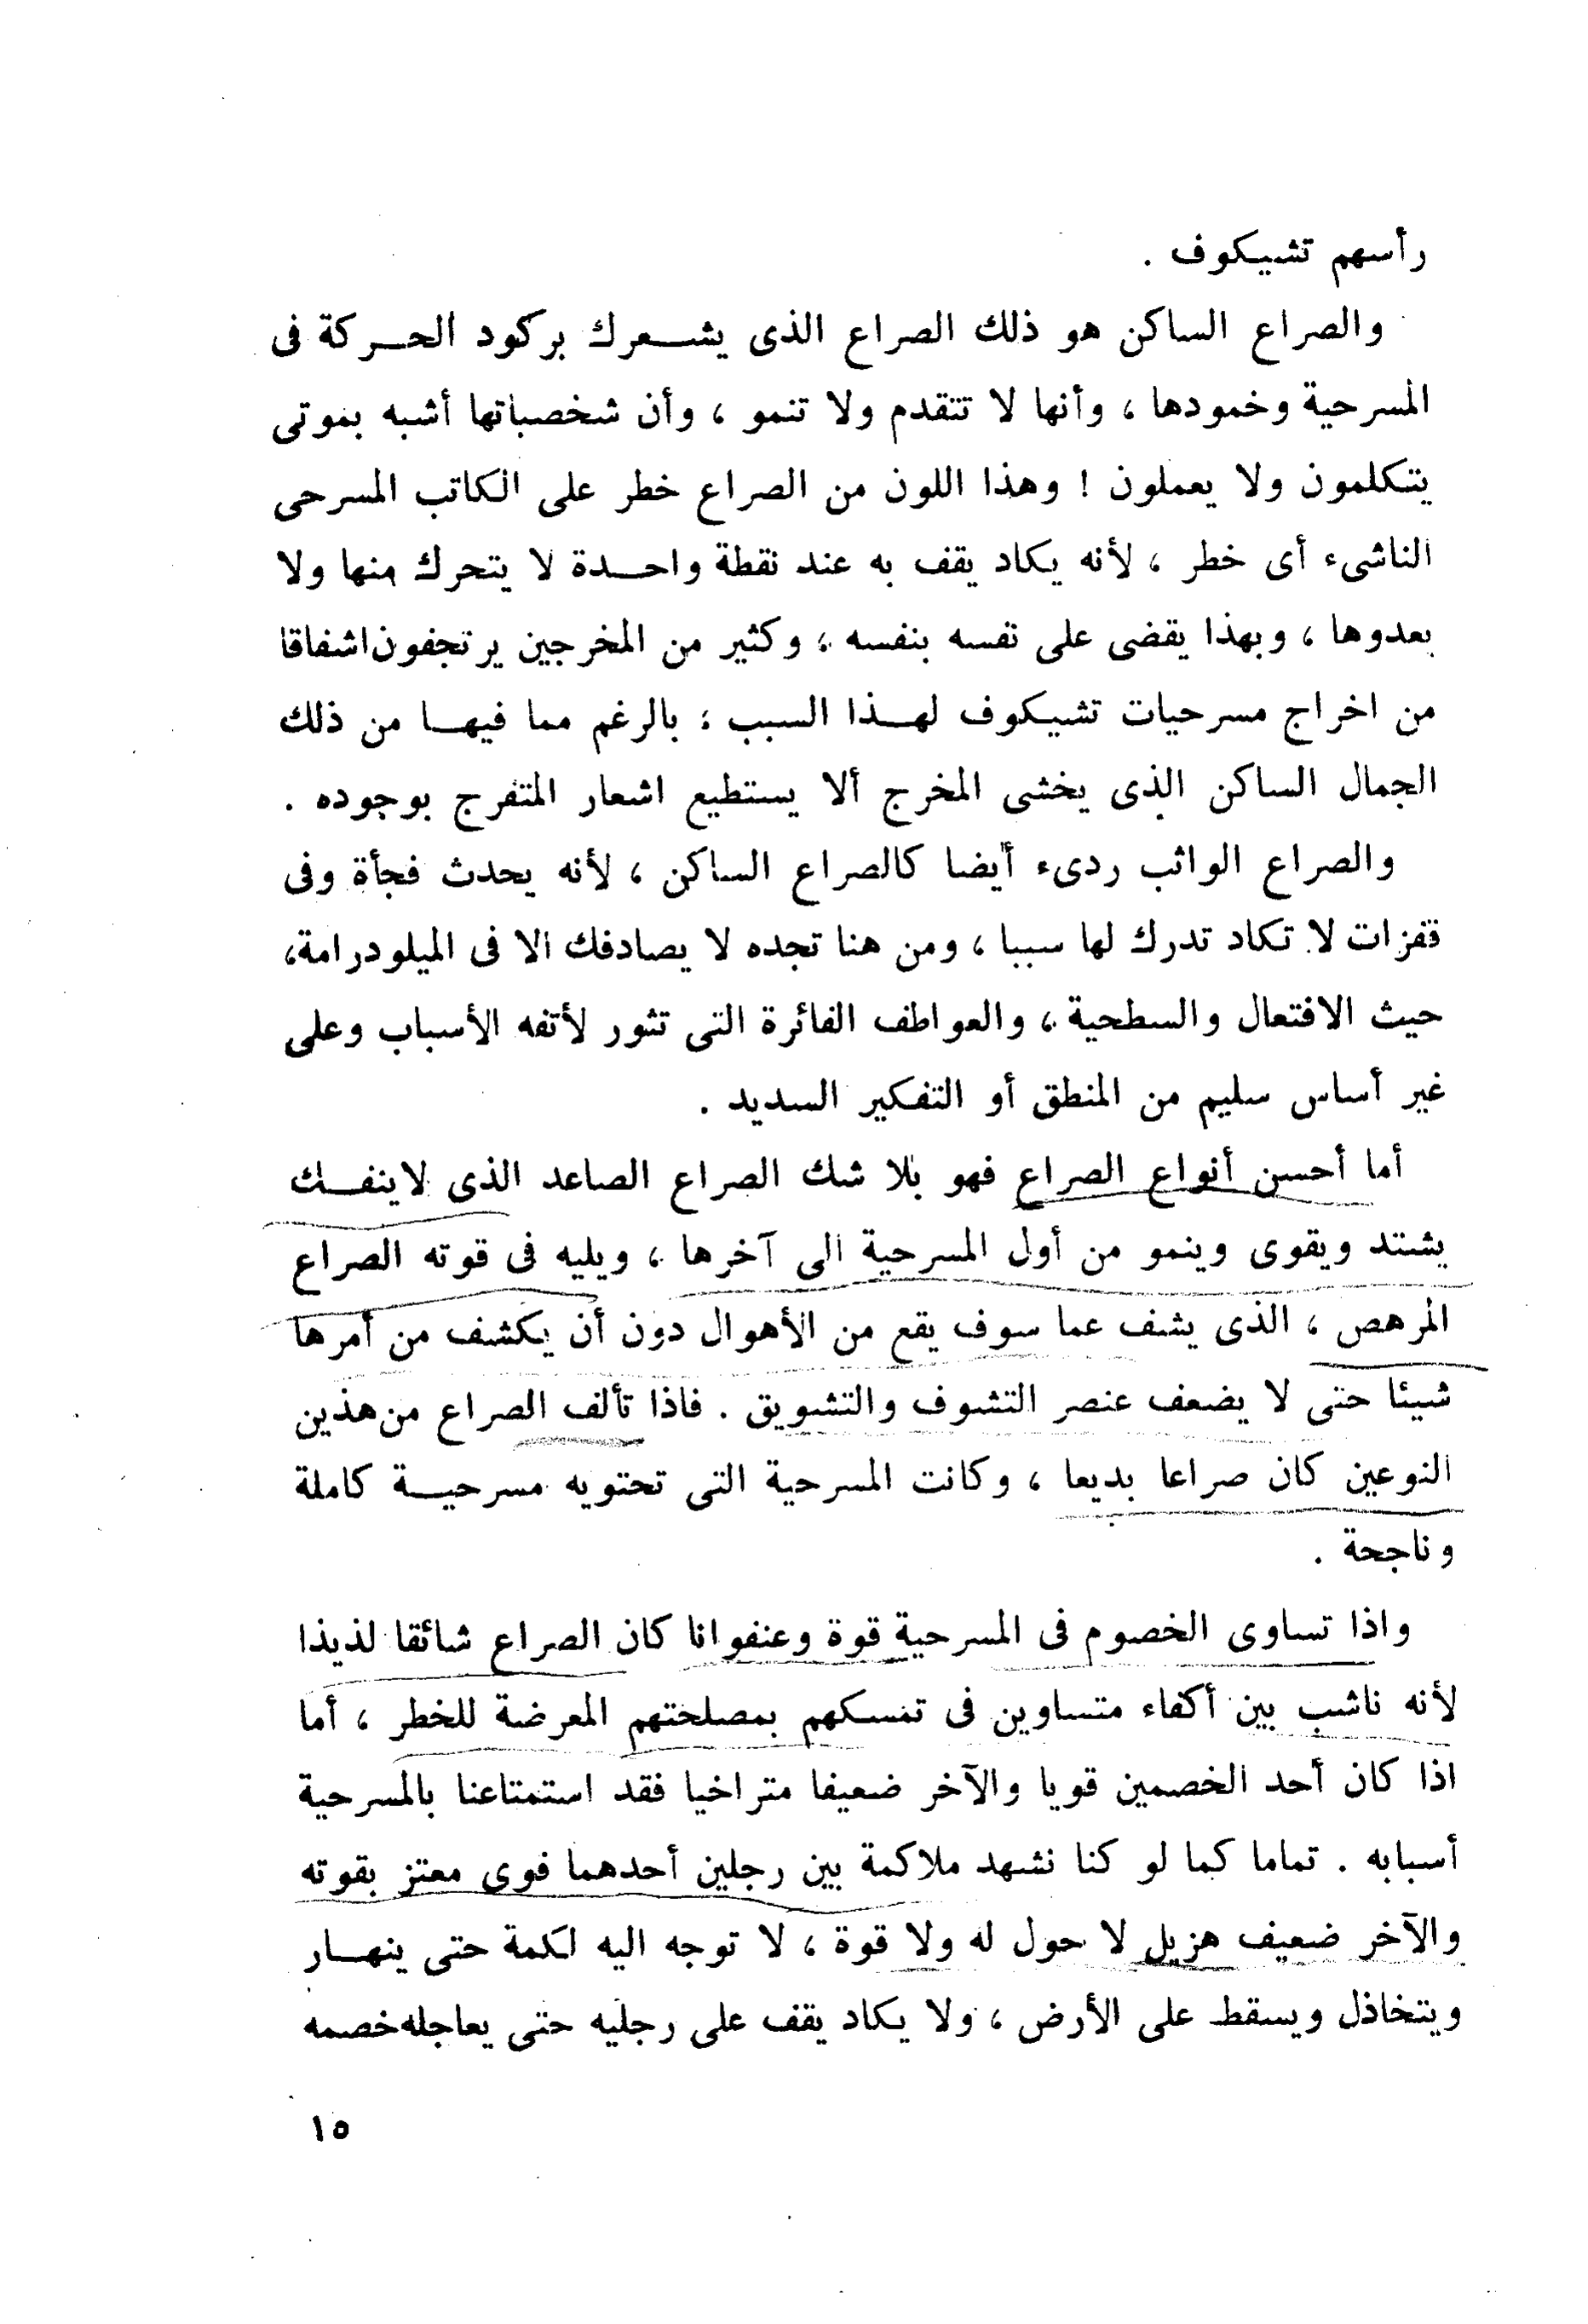 رأسهم تشيكوف .
والصراع الساكن هو ذلك الصراع الذى يشعرك بركود الحركة فى
المسرحية وخمودها ، وأنها لا تتقدم ولا تنمو ، وأن شخصياتها أشبه بموتى
يتكلمون ولا يعملون ! وهذا اللون من الصراع خطر على الكاتب المسرحى
الناشىء أى خطر ، لأنه يكاد يقف به عند نقطة واحدة لا يتحرك منها ولا
يعدوها ، وبهذا يقضى على نفسه بنفسه ، وكثير من المخرجين يرتجفون اشفاقا
من اخراج مسرحيات تشيكوف لهذا السبب ، بالرغم مما فيها من ذلك
الجمال الساكن الذى يخشى المخرج ألا يستطيع اشعار المتفرج بوجوده .
والصراع الواثب ردىء أيضا كالصراع الساكن ، لأنه يحدث فجأة وفى
قفزات لا تكاد تدرك لها سببا ، ومن هنا تجده لا يصادفك الا فى الميلودرامة،
حيث الافتعال والسطحية ، والعواطف الفائرة التى تثور لأتفه الأسباب وعلى
غير أساس سليم من المنطق أو التفكير السديد .
أما أحسن أنواع الصراع فهو بلا شك الصراع الصاعد الذى لاينفك
يشتد ويقوى وينمو من أول المسرحية الى آخرها ، ويليه فى قوته الصراع
المرهص ، الذى يشف عما سوف يقع من الأهوال دون أن يكشف من أمرها
شيئا حتى لا يضعف عنصر التشوف والتشويق . فاذا تألف الصراع من هذين
النوعين كان صراعا بديعا ، وكانت المسرحية التى تحتويه مسرحية كاملة
وناجحة .
واذا تساوى الخصوم فى المسرحية قوة وعنفوانا كان الصراع شائقا لذيذا
لأنه ناشب بين أكفاء متساوين فى تمسكهم بمصلحتهم المعرضة للخطر ، أما
اذا كان أحد الخصمين قويا والآخر ضعيفا متراخيا فقد استمتاعنا بالمسرحية
أسبابه . تماما كما لو كنا نشهد ملاكمة بين رجلين أحدهما قوى معتز بقوته
والآخر ضعيف هزيل لا حول له ولا قوة ، لا توجه اليه لكمة حتى ينهار
ويتخاذل ويسقط على الأرض ، ولا يكاد يقف على رجليه حتى يعاجله خصمه
١٥